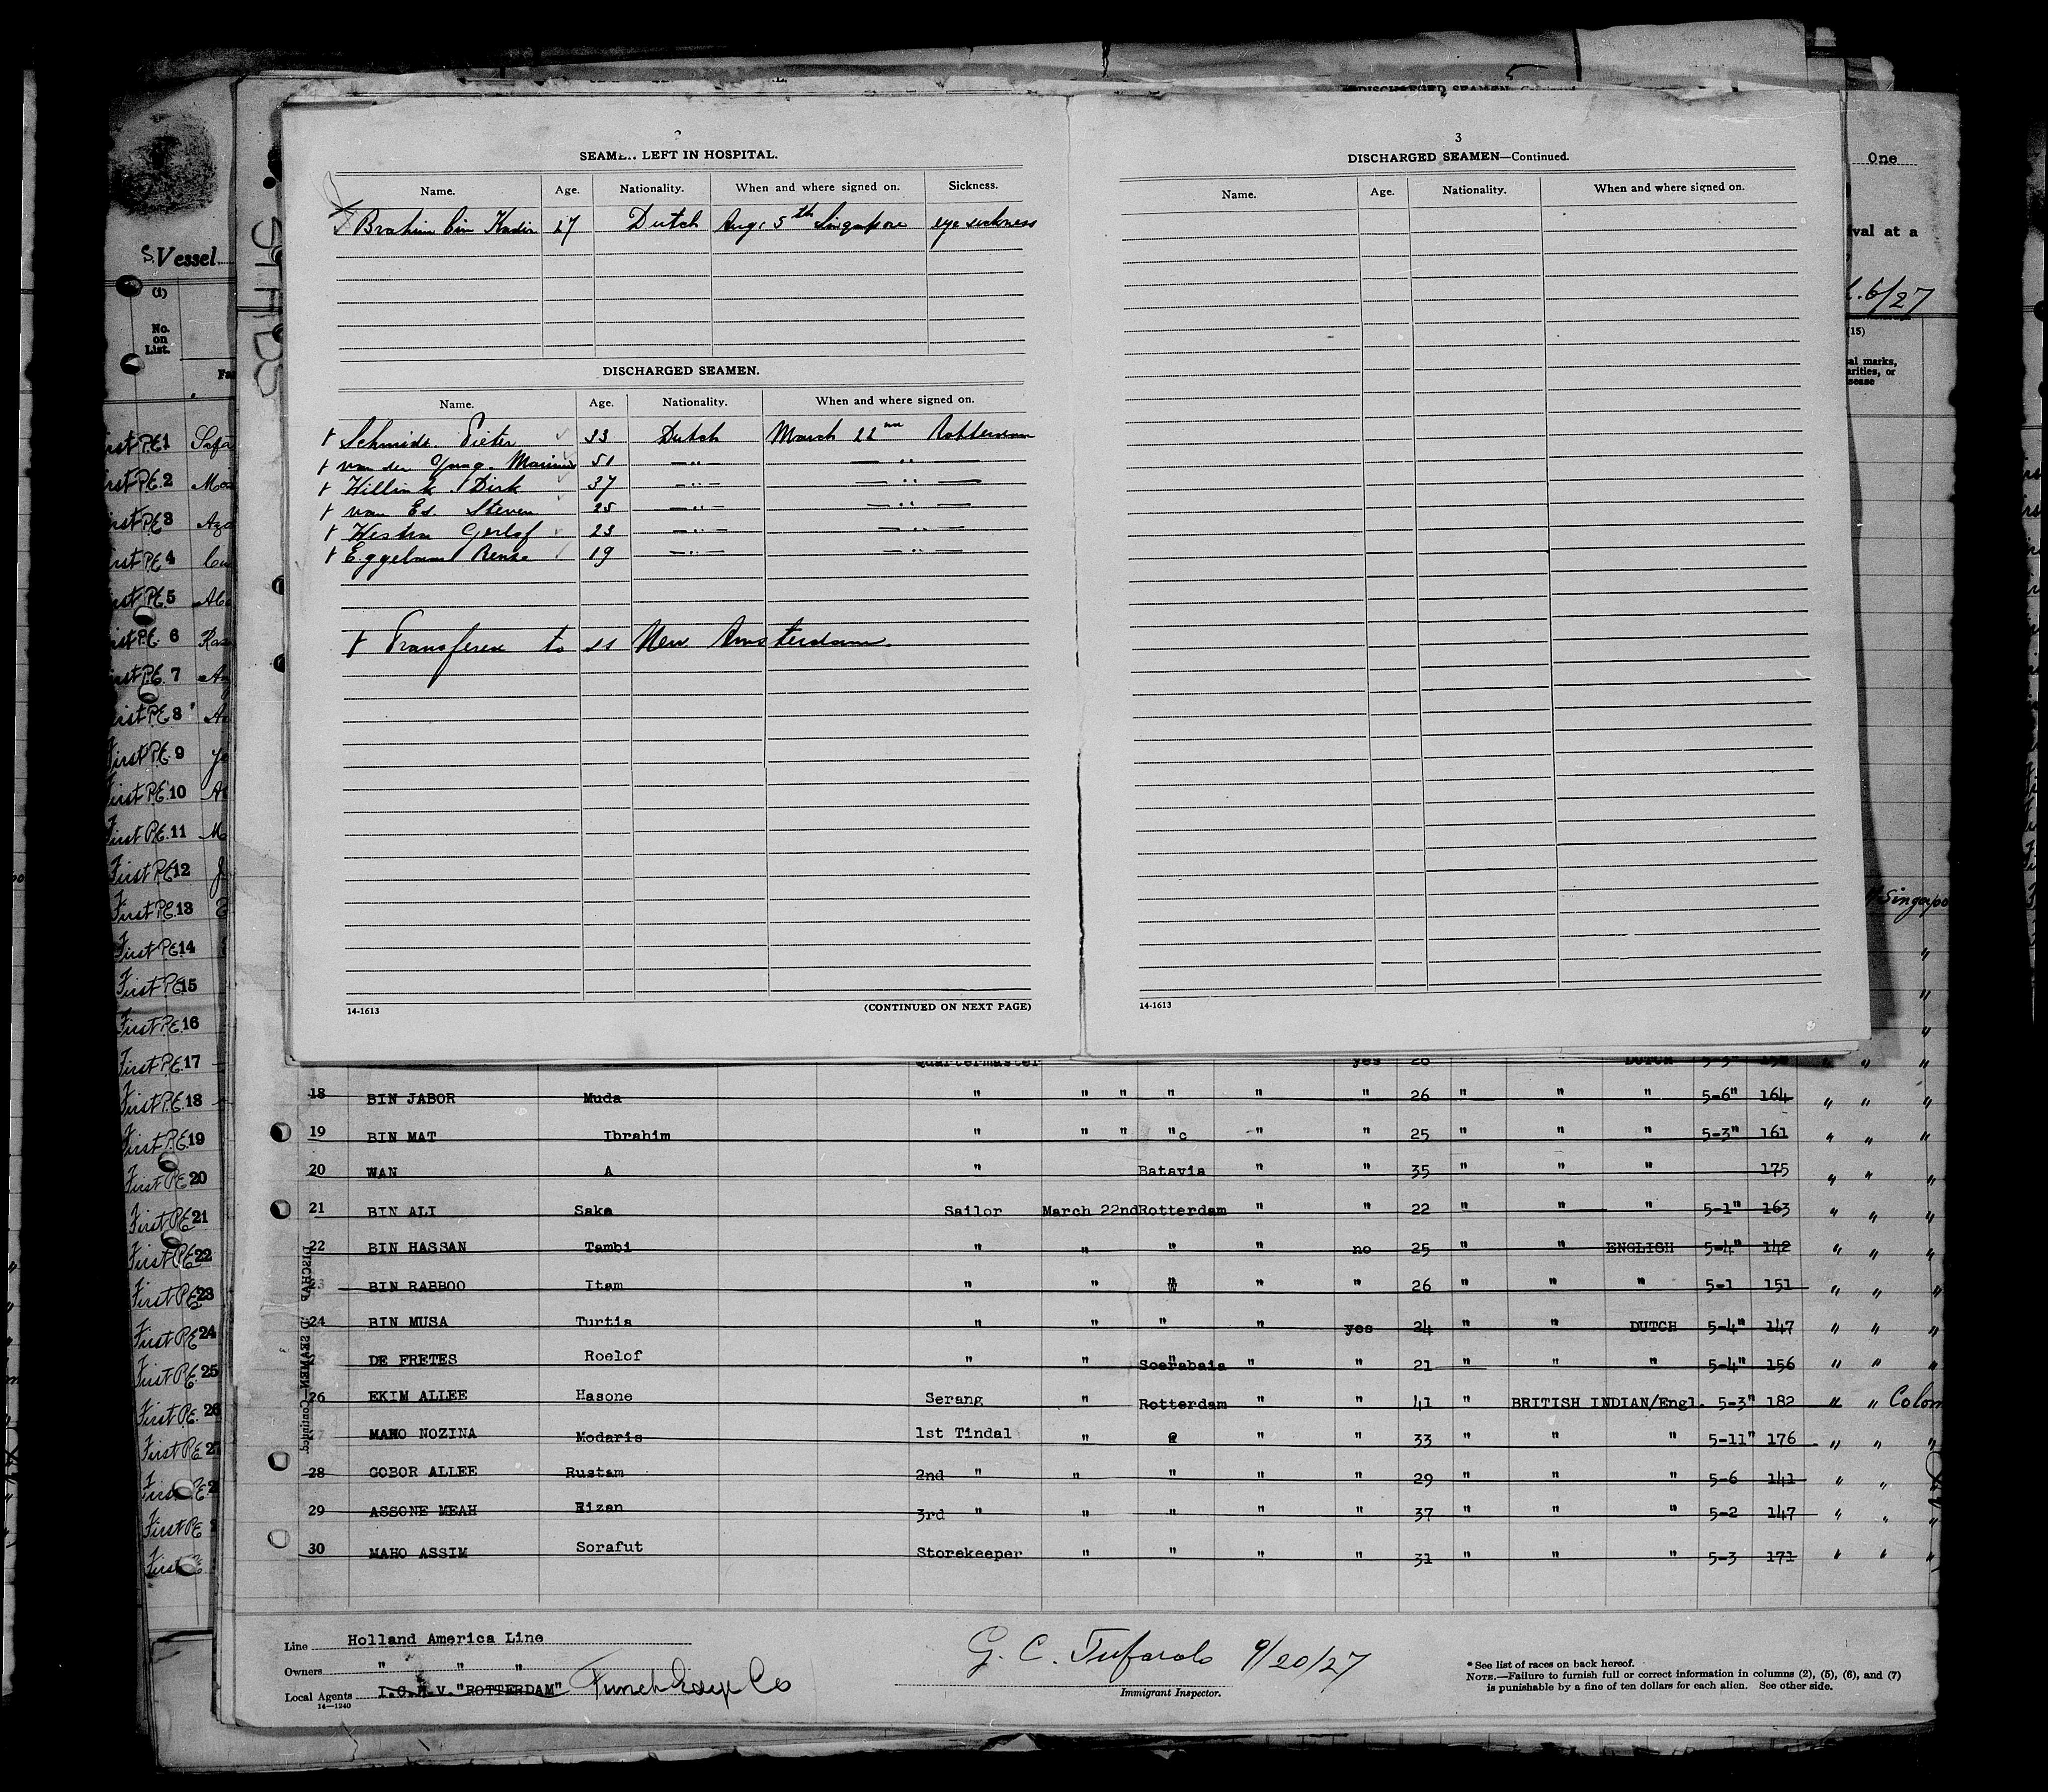 3
SEAMEN LEFT IN HOSPITAL.
Name. Age. Nationality. When and where signed on. Sickness.
Brahim bin Kadir 27 Dutch Aug: 5th Singapore eye sickness
DISCHARGED SEAMEN.
Name. Age. Nationality. When and where signed on.
Schmidt. Pieter 33 Dutch March 22nd Rotterdam
van der 51 —"— — " —
Willink. Dirk 37 —"— — " —
van Es. Steven 25 —"— — " —
Westra Gerlof 23 —"— — " —
19 —"— — " —
to ss New Amsterdam.
14-1613 (CONTINUED ON NEXT PAGE)
DISCHARGED SEAMEN—Continued.
Name. Age. Nationality. When and where signed on.
14-1613
S. Vessel
(1)
No. on List.
One
ival at a
6/27
(15)
al marks,
arities, or
sease
First P.E. 1
First P.E. 2
First P.E. 3
First P.E. 4
First P.E. 5
First P.E. 6
First P.E. 7
First P.E. 8
First P.E. 9
First P.E. 10
First P.E. 11
First P.E. 12
First P.E. 13 Singapo
First P.E. 14
First P.E. 15
First P.E. 16
First P.E. 17 Quartermaster yes DUTCH
First P.E. 18 18 BIN JABOR Muda " " " " " " 26 " " " 5-6" 164 " " "
First P.E. 19 19 BIN MAT Ibrahim " " " "c " " 25 " " " 5-3" 161 " " "
First P.E. 20 20 WAN A " Batavia " " 35 " " " 175 " " "
First P.E. 21 21 BIN ALI Saka Sailor March 22nd Rotterdam " " 22 " " " 5-1" 163 " " "
First P.E. 22 22 BIN HASSAN Tambi " " " " no 25 " " ENGLISH 5-4" 142 " " "
First P.E. 23 23 BIN RABBOO Itam " " " " " 26 " " " 5-1 151 " " "
First P.E. 24 24 BIN MUSA Turtia " " " " yes 24 " " DUTCH 5-4" 147 " " "
First P.E. 25 DE FRETES Roelof " " Soerabaia " " 21 " " " 5-4" 156 " " "
First P.E. 26 26 EKIM ALLEE Hasone Serang " Rotterdam " " 41 " BRITISH INDIAN/Engl. 5-3" 182 " " Colom
First P.E. 27 MAHO NOZINA Modaris 1st Tindal " " " 33 " " " 5-11" 176 " " "
First P.E. 28 GOBOR ALLEE Rustam 2nd " " " " " 29 " " " 5-6 141 " "
First P.E. 29 ASSONE MEAH Eizan 3rd " " " " " 37 " " " 5-2 147 " " "
First 30 MAHO ASSIM Sorafut Storekeeper " " " " 31 " " " 5-3 171 " " "
SEAMEN—Continued
Line Holland America Line
Owners " " "
Local Agents "ROTTERDAM" Funch Edye Co
14—1240
G. C. Tufarolo 9/20/27
Immigrant Inspector.
* See list of races on back hereof.
NOTE.—Failure to furnish full or correct information in columns (2), (5), (6), and (7)
is punishable by a fine of ten dollars for each alien. See other side.